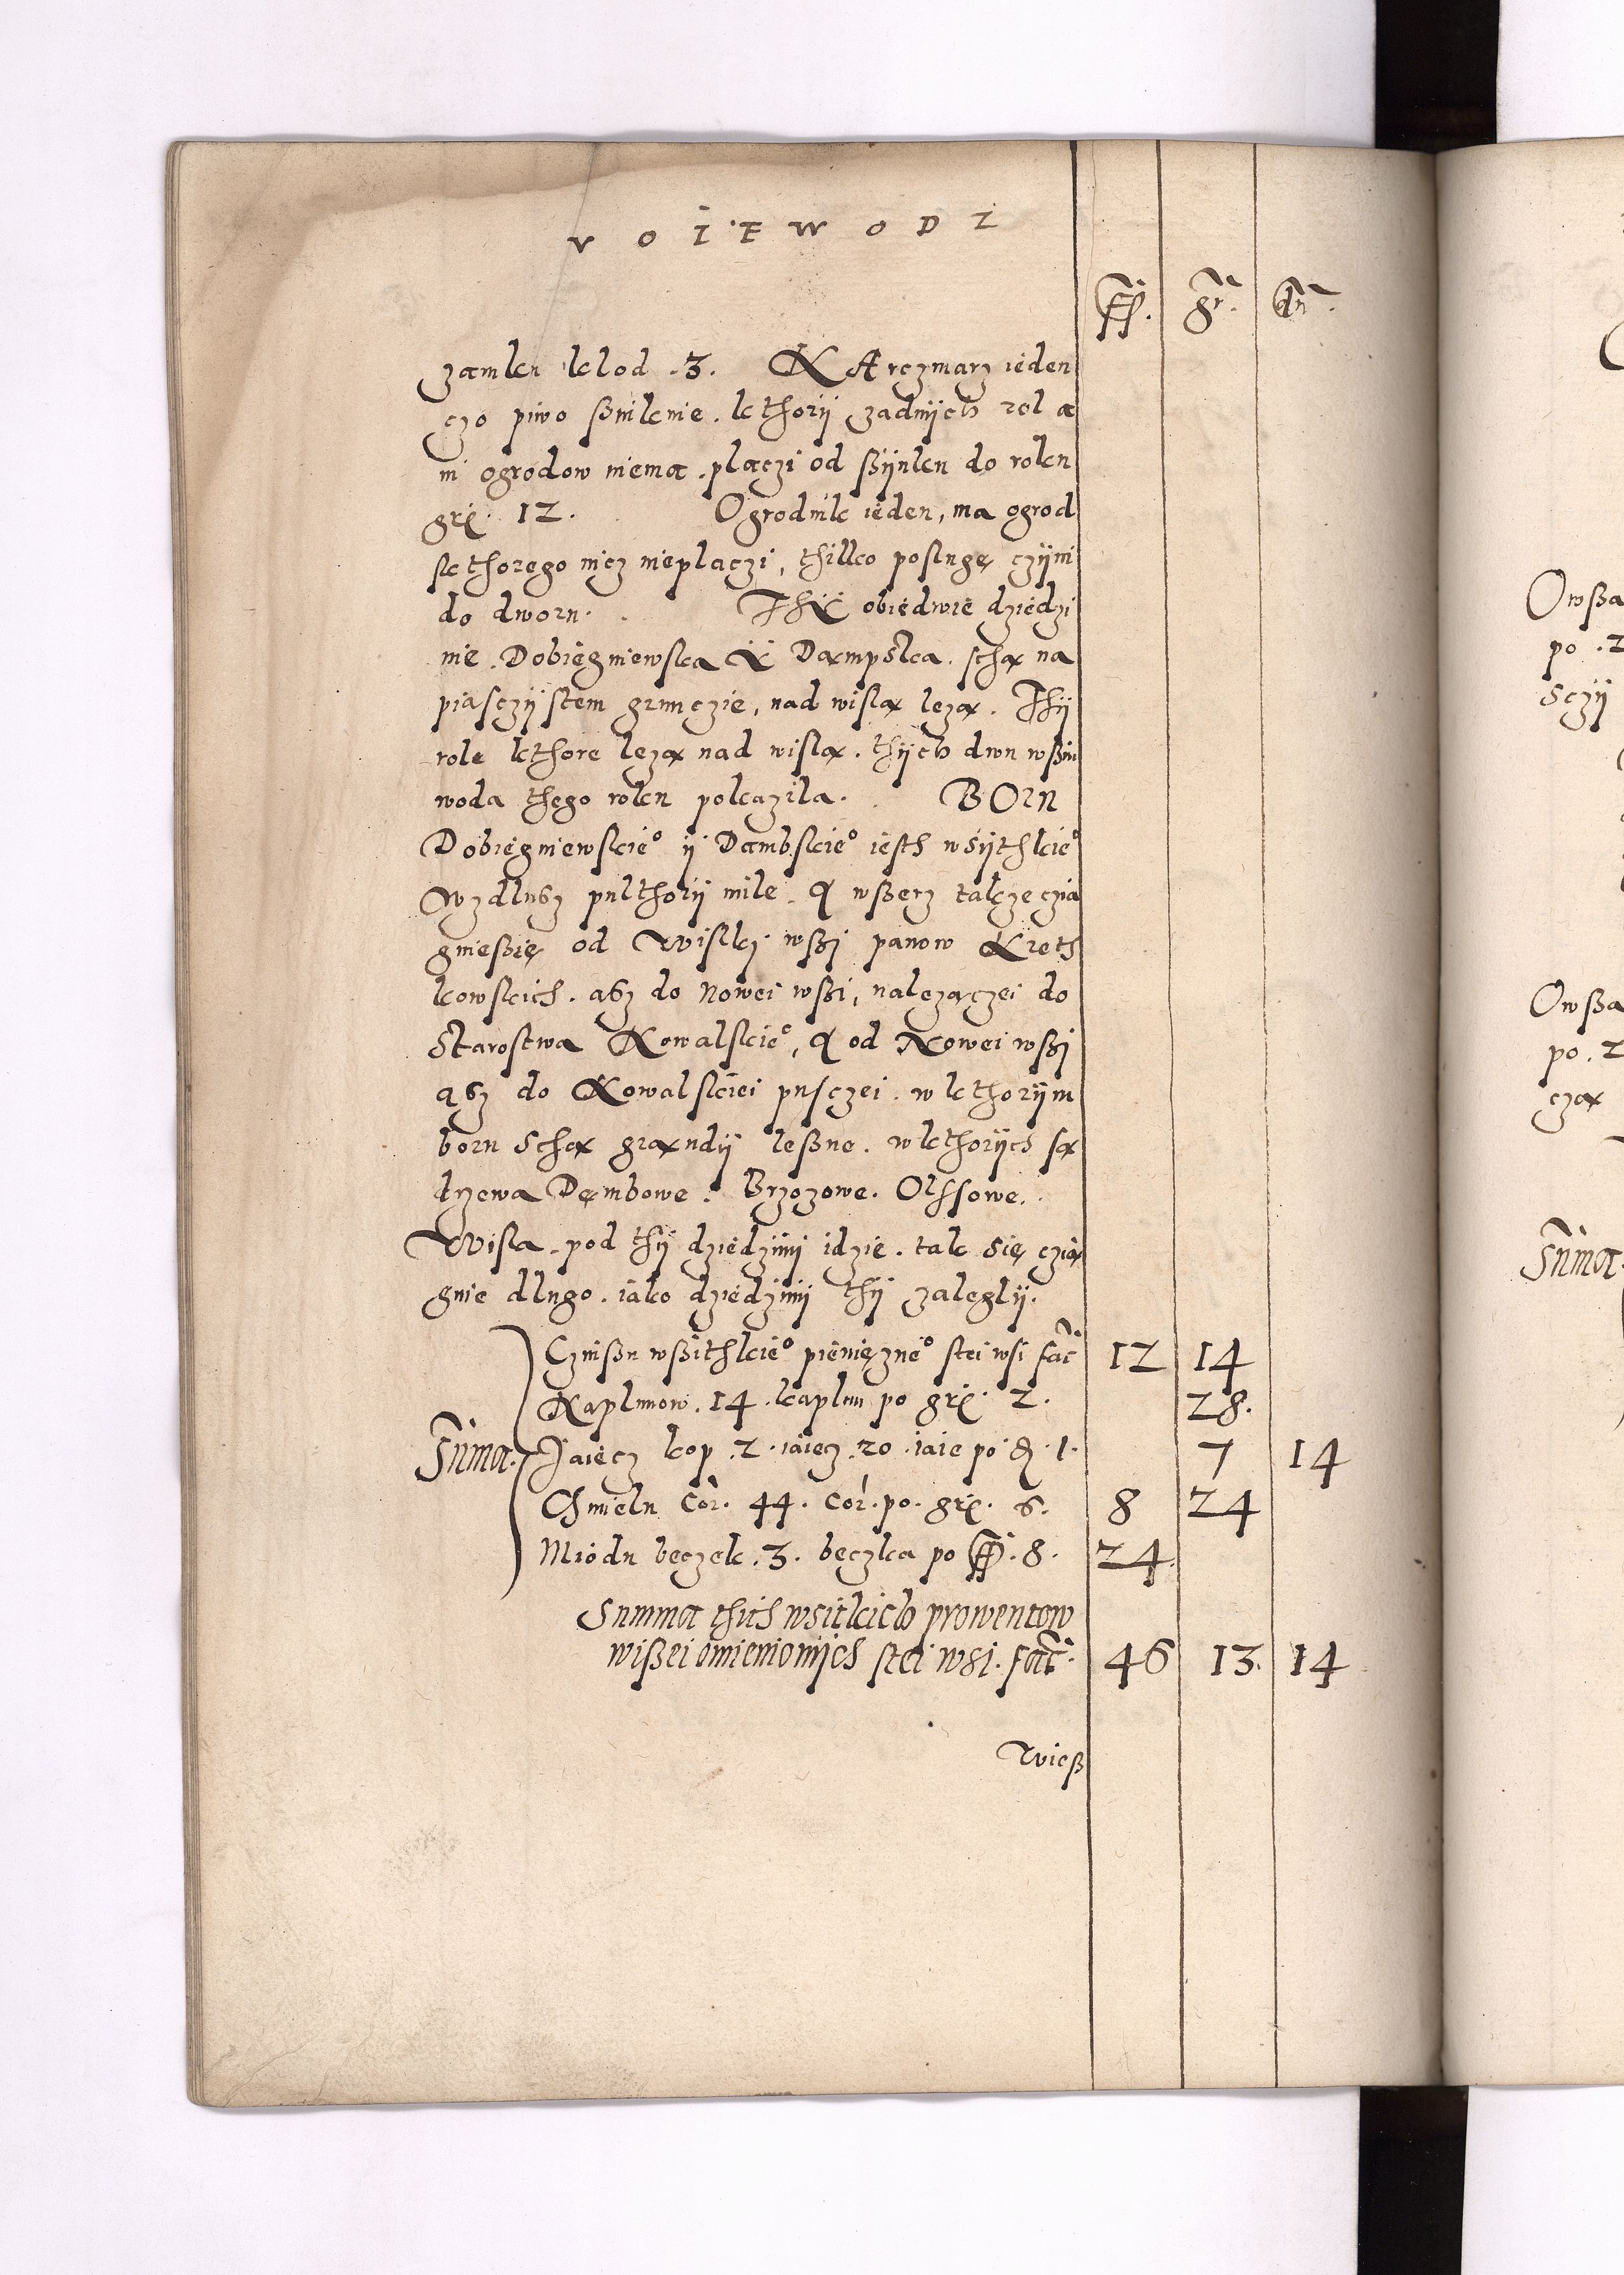 VOIEWODZ
fl. gr. dn.
zamku klod .3. KArczmarz ieden
czo piwo ssinkuie. kthorÿ zadnÿch rol a
ni ogrodow niema. placzi od ssÿnku do roku
grx. 12. Ogrodnik ieden, ma ogrod
skthorego nicz nieplaczi, thilko poslugę czÿni
do dworu. THE obiedwie dziedzi
nie. Dobiegniewska Y Dąmpska. schą na
piasczÿstem grunczie, nad wislą lezą. Thÿ
role kthore lezą nad wislą. thÿch dwu wssiu
woda thego roku pokazila. BORU
Dobiegniewskie° ÿ Dambskie° iesth wsÿthkie°
Wzdlusz pulthorÿ mile. A wsserz takze czią
gniessię od Wislki wssi panow Kreth
kowskich. asz do Nowei wssi, nalezączei do
Starostwa Kowalskie°, A od Nowei wssi
asz do Kowalskiei pusczei. w kthorÿm
boru Schą grąndÿ lessne. w kthorÿch są
drzewa Dembowe. Brzozowe. Olssowe.
Wisla. pod thÿ dziedzini idzie. tak się czią
gnie dlugo. iako dziedzinÿ thÿ zaleglÿ.
Suma.
Czinssu wssithkie° pieniężne° stei wsi fac 12 14
Kaplunow. 14. kaplun po grx. 2. 28.
Jaiecz kop .2. iaiecz .20. iaie po d. 1. 7 14
Chmielu Cor. 44. Cor. po. grx. 6. 8 24
Miodu beczek .3. beczka po fl. 8. 24.
Summa thich wsitkich prowentow
wissei omienionÿch stei wsi. fac. 46 13. 14
Wiess
Owssa
po .2
sczÿ
Owssa
po .2
czą
Suma.